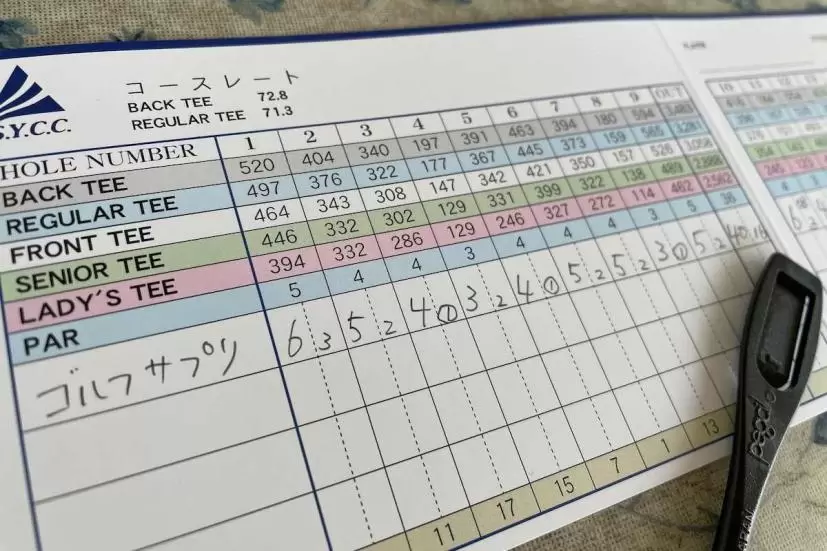 S.Y.C.C.
コースレート
BACK TEE 72.8
REGULAR TEE 71.3
HOLE NUMBER 1 2 3 4 5 6 7 8 9 OUT
BACK TEE 520 404 340 197 391 463 394 180 594 3483
REGULAR TEE 497 376 322 177 367 445 373 159 565 3281
FRONT TEE 464 343 308 147 342 421 350 157 526 3058
SENIOR TEE 446 332 302 129 331 399 322 138 489 2888
LADY'S TEE 394 332 286 129 246 327 272 114 462 2562
PAR 5 4 4 3 4 4 4 3 5 36
ゴルフサプリ 6 3 5 2 4 ① 3 2 4 ① 5 2 5 2 3 ① 5 2 40 16
11 17 15 7 1 13
pegd